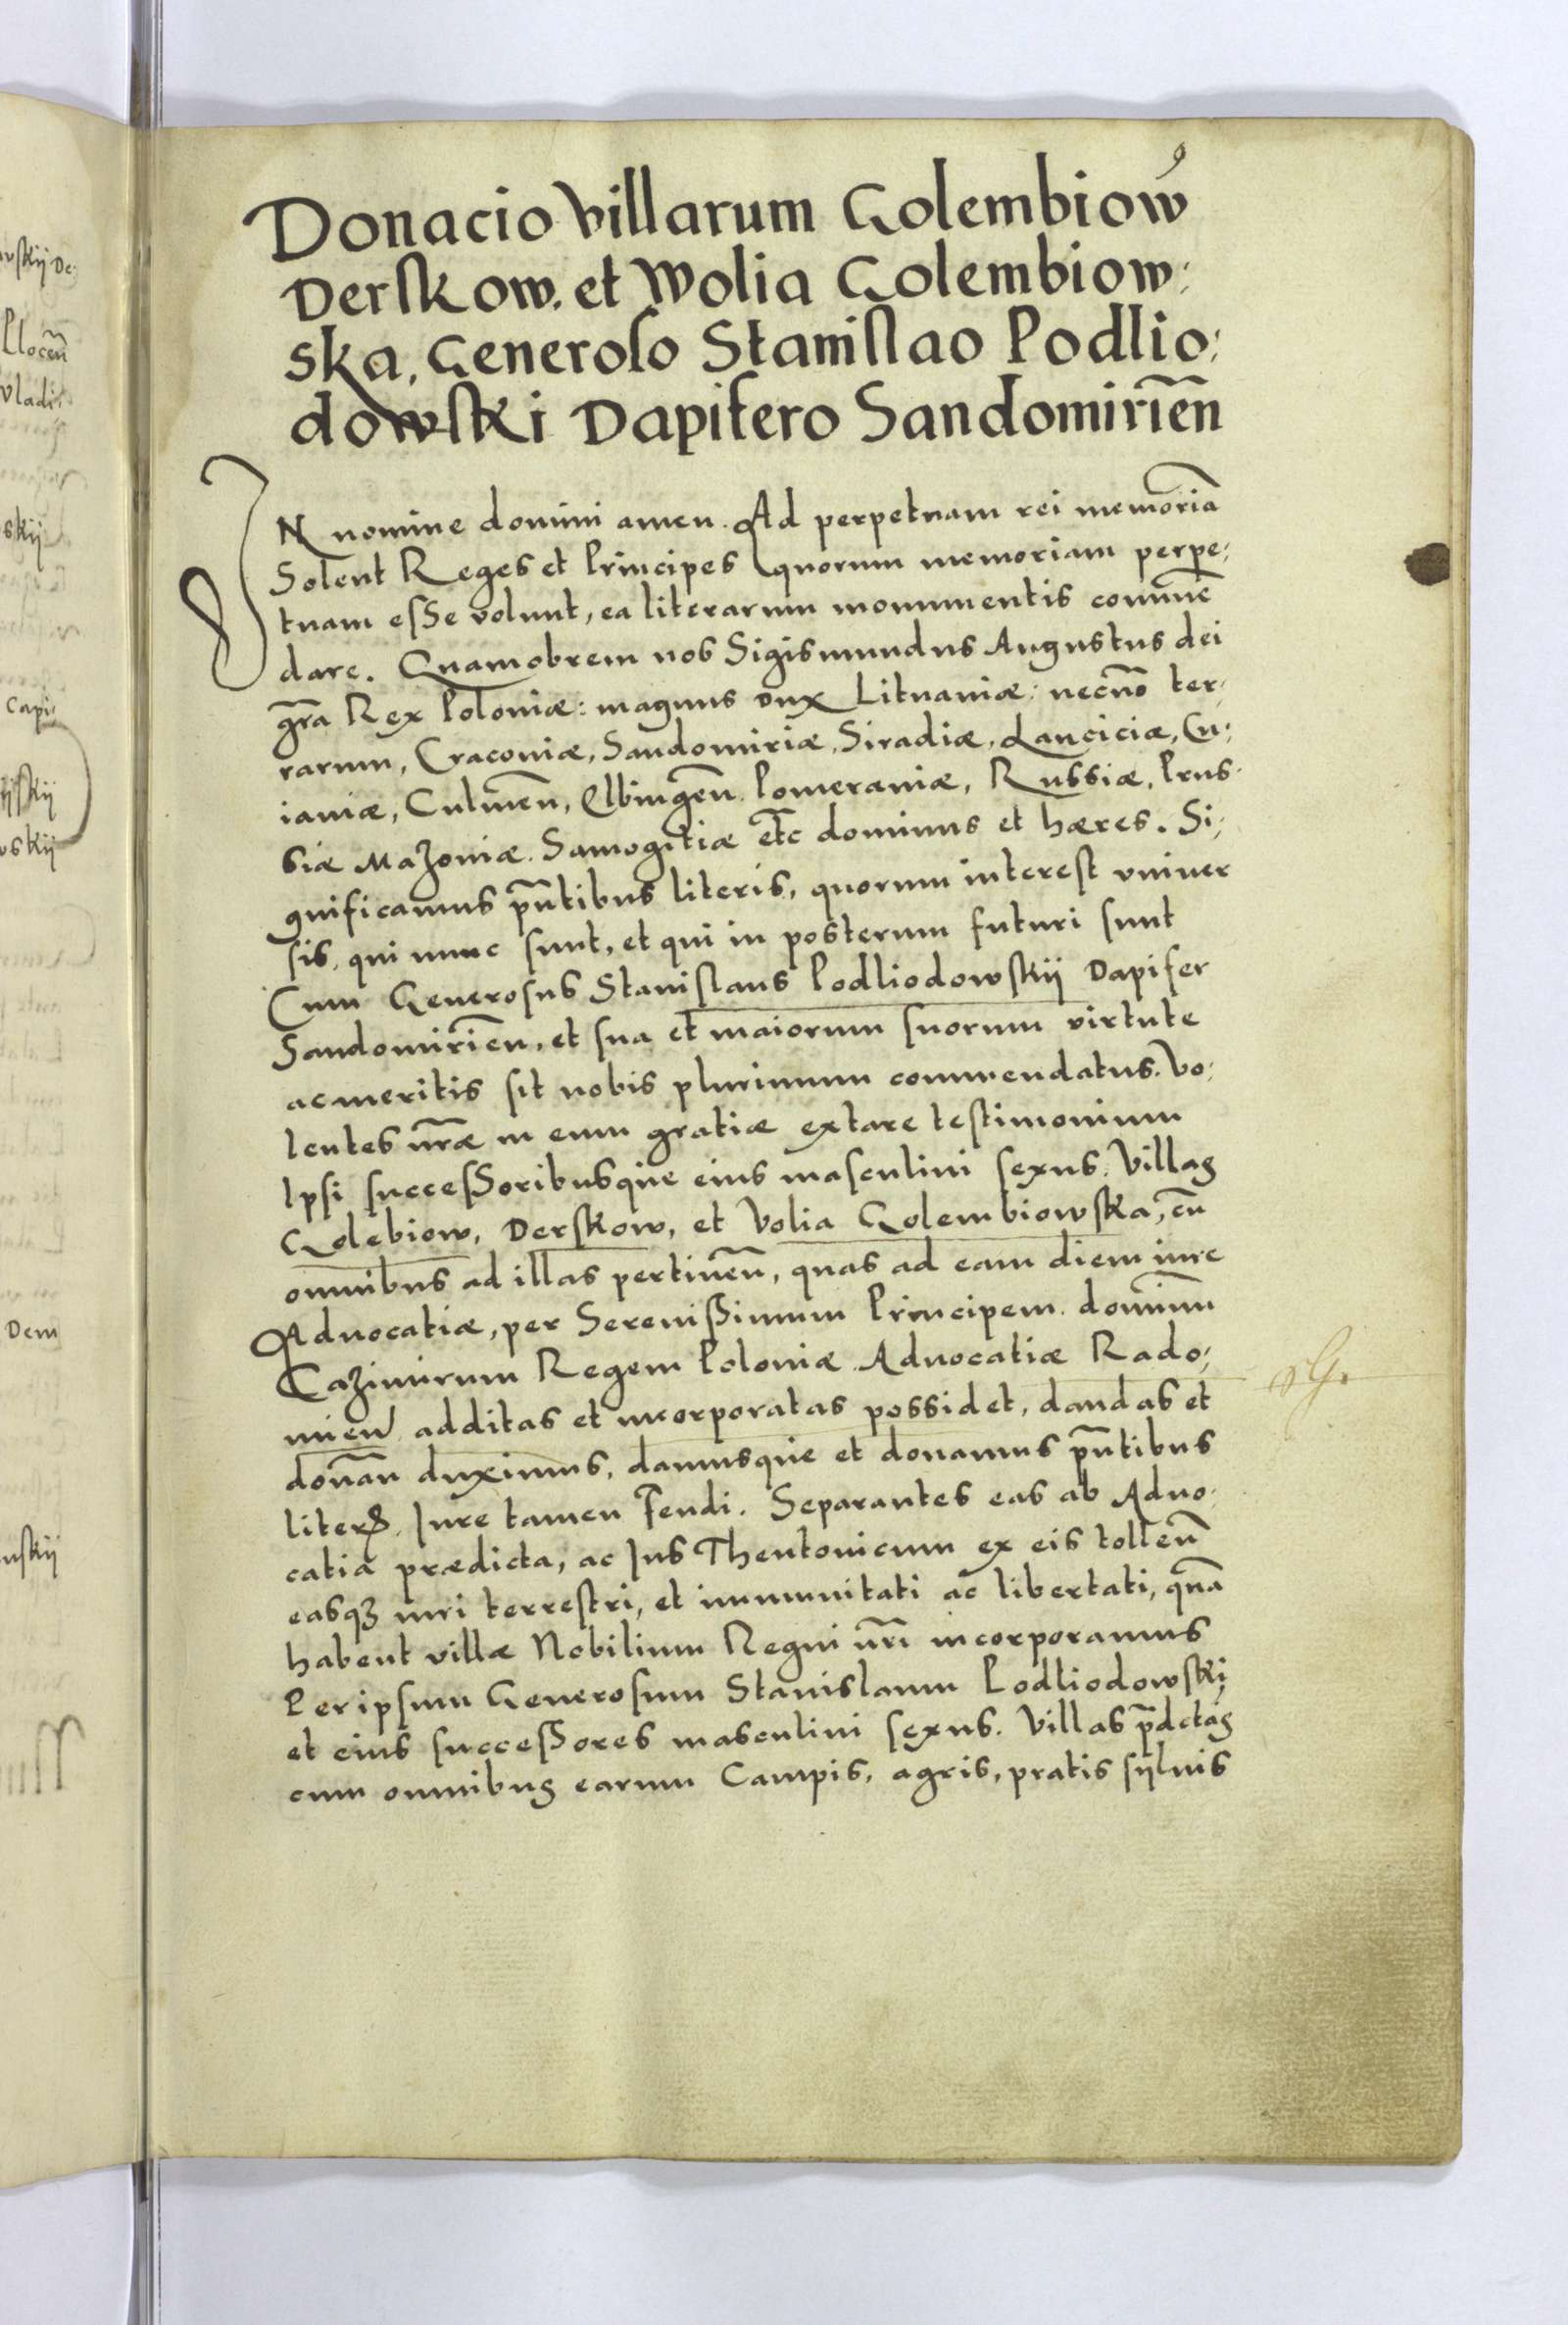 9
Donacio villarum Golembiow
Derskow. et Wolia Golembiow:
ska, Generoso Stanislao Podlio:
dowski Dapifero Sandomirien̄
IN nomine domini amen. Ad perpetuam rei memoriā
Solent Reges et Principes quorum memoriam perpe:
tuam esse volunt, ea literarum monumentis commē
dare. Quamobrem nos Sigismundus Augustus dei
gr̄a Rex Poloniæ: magnus dux Lituaniæ: necnō ter:
rarum, Cracoviæ, Sandomiriæ, Siradiæ, Lanciciæ, Cu:
iaviæ, Culmen̄, Elbingen̄. Pomeraniæ, Russiæ, Prus:
siæ Mazoviæ. Samogitiæ et̄c dominus et hæres. Si:
gnificamus pn̄tibus literis, quorum interest univer
sis, qui nunc sunt, et qui in posterum futuri sunt
Cum Generosus Stanislaus Podliodowskij Dapifer
Sandomirien̄. et sua et maiorum suorum virtute
ac meritis sit nobis plurimum commendatus. Vo:
lentes nr̄æ in eum gratiæ extare testimonium
Ipsi successoribusque eius masculini sexus. Villas
Golebiow, Derskow, et Volia Golembiowska, cū
omnibus ad illas pertinen̄, quas ad eam diem iure
Advocatiæ, per Serenissimum Principem. dominū
Cazimirum Regem Poloniæ Advocatiæ Rado:
mien̄ additas et incorporatas possidet, dandas et
donan̄ duximus, damusque et donamus pn̄tibus
literis. Iure tamen Feudi. Separantes eas ab Advo:
catia prædicta, ac Ius Theutonicum ex eis tollen̄
easq3 iuri terrestri, et immunitati ac libertati, quā
habent villæ Nobilium Regni nr̄i incorporamus
Per ipsum Generosum Stanislaum Podliodowskij
et eius successores masculini sexus. Villas pr̄dctas
cum omnibus earum Campis, agris, pratis sylvis